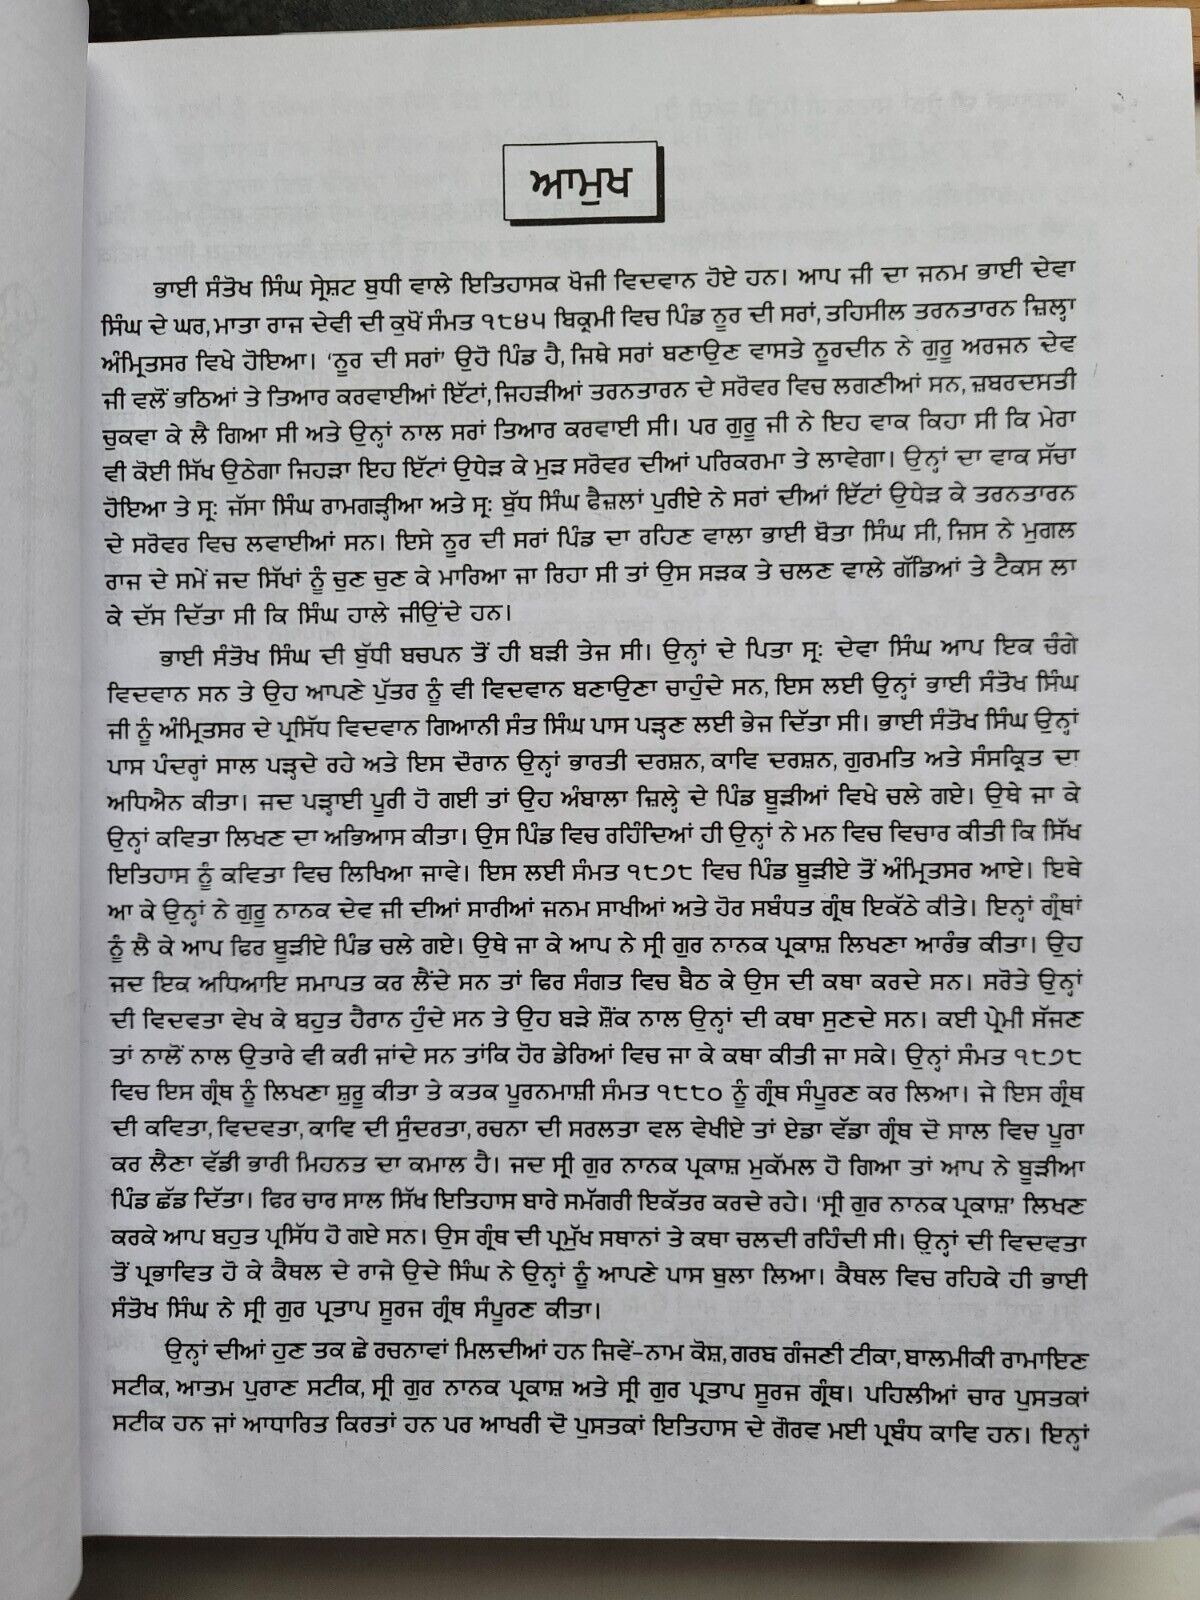 ਆਮੁਖ
ਭਾਈ ਸੰਤੋਖ ਸਿੰਘ ਸ੍ਰੇਸ਼ਟ ਬੁਧੀ ਵਾਲੇ ਇਤਿਹਾਸਕ ਖੋਜੀ ਵਿਦਵਾਨ ਹੋਏ ਹਨ। ਆਪ ਜੀ ਦਾ ਜਨਮ ਭਾਈ ਦੇਵਾ
ਸਿੰਘ ਦੇ ਘਰ, ਮਾਤਾ ਰਾਜ ਦੇਵੀ ਦੀ ਕੁਖੋਂ ਸੰਮਤ ੧੮੪੫ ਬਿਕ੍ਰਮੀ ਵਿਚ ਪਿੰਡ ਨੂਰ ਦੀ ਸਰਾਂ, ਤਹਿਸੀਲ ਤਰਨਤਾਰਨ ਜ਼ਿਲ੍ਹਾ
ਅੰਮ੍ਰਿਤਸਰ ਵਿਖੇ ਹੋਇਆ। ‘ਨੂਰ ਦੀ ਸਰਾਂ’ ਉਹੋ ਪਿੰਡ ਹੈ, ਜਿਥੇ ਸਰਾਂ ਬਣਾਉਣ ਵਾਸਤੇ ਨੂਰਦੀਨ ਨੇ ਗੁਰੂ ਅਰਜਨ ਦੇਵ
ਜੀ ਵਲੋਂ ਭਠਿਆਂ ਤੇ ਤਿਆਰ ਕਰਵਾਈਆਂ ਇੱਟਾਂ, ਜਿਹੜੀਆਂ ਤਰਨਤਾਰਨ ਦੇ ਸਰੋਵਰ ਵਿਚ ਲਗਣੀਆਂ ਸਨ, ਜ਼ਬਰਦਸਤੀ
ਚੁਕਵਾ ਕੇ ਲੈ ਗਿਆ ਸੀ ਅਤੇ ਉਨ੍ਹਾਂ ਨਾਲ ਸਰਾਂ ਤਿਆਰ ਕਰਵਾਈ ਸੀ। ਪਰ ਗੁਰੂ ਜੀ ਨੇ ਇਹ ਵਾਕ ਕਿਹਾ ਸੀ ਕਿ ਮੇਰਾ
ਵੀ ਕੋਈ ਸਿੱਖ ਉਠੇਗਾ ਜਿਹੜਾ ਇਹ ਇੱਟਾਂ ਉਧੇੜ ਕੇ ਮੁੜ ਸਰੋਵਰ ਦੀਆਂ ਪਰਿਕਰਮਾ ਤੇ ਲਾਵੇਗਾ। ਉਨ੍ਹਾਂ ਦਾ ਵਾਕ ਸੱਚਾ
ਹੋਇਆ ਤੇ ਸ੍ਰ: ਜੱਸਾ ਸਿੰਘ ਰਾਮਗੜ੍ਹੀਆ ਅਤੇ ਸ੍ਰ: ਬੁੱਧ ਸਿੰਘ ਫੈਜ਼ਲਾਂ ਪੁਰੀਏ ਨੇ ਸਰਾਂ ਦੀਆਂ ਇੱਟਾਂ ਉਧੇੜ ਕੇ ਤਰਨਤਾਰਨ
ਦੇ ਸਰੋਵਰ ਵਿਚ ਲਵਾਈਆਂ ਸਨ। ਇਸੇ ਨੂਰ ਦੀ ਸਰਾਂ ਪਿੰਡ ਦਾ ਰਹਿਣ ਵਾਲਾ ਭਾਈ ਬੋਤਾ ਸਿੰਘ ਸੀ, ਜਿਸ ਨੇ ਮੁਗਲ
ਰਾਜ ਦੇ ਸਮੇਂ ਜਦ ਸਿੱਖਾਂ ਨੂੰ ਚੁਣ ਚੁਣ ਕੇ ਮਾਰਿਆ ਜਾ ਰਿਹਾ ਸੀ ਤਾਂ ਉਸ ਸੜਕ ਤੇ ਚਲਣ ਵਾਲੇ ਗੱਡਿਆਂ ਤੇ ਟੈਕਸ ਲਾ
ਕੇ ਦੱਸ ਦਿੱਤਾ ਸੀ ਕਿ ਸਿੰਘ ਹਾਲੇ ਜੀਉਂਦੇ ਹਨ।
ਭਾਈ ਸੰਤੋਖ ਸਿੰਘ ਦੀ ਬੁੱਧੀ ਬਚਪਨ ਤੋਂ ਹੀ ਬੜੀ ਤੇਜ ਸੀ। ਉਨ੍ਹਾਂ ਦੇ ਪਿਤਾ ਸ੍ਰ: ਦੇਵਾ ਸਿੰਘ ਆਪ ਇਕ ਚੰਗੇ
ਵਿਦਵਾਨ ਸਨ ਤੇ ਉਹ ਆਪਣੇ ਪੁੱਤਰ ਨੂੰ ਵੀ ਵਿਦਵਾਨ ਬਣਾਉਣਾ ਚਾਹੁੰਦੇ ਸਨ, ਇਸ ਲਈ ਉਨ੍ਹਾਂ ਭਾਈ ਸੰਤੋਖ ਸਿੰਘ
ਜੀ ਨੂੰ ਅੰਮ੍ਰਿਤਸਰ ਦੇ ਪ੍ਰਸਿੱਧ ਵਿਦਵਾਨ ਗਿਆਨੀ ਸੰਤ ਸਿੰਘ ਪਾਸ ਪੜ੍ਹਣ ਲਈ ਭੇਜ ਦਿੱਤਾ ਸੀ। ਭਾਈ ਸੰਤੋਖ ਸਿੰਘ ਉਨ੍ਹਾਂ
ਪਾਸ ਪੰਦਰ੍ਹਾਂ ਸਾਲ ਪੜ੍ਹਦੇ ਰਹੇ ਅਤੇ ਇਸ ਦੌਰਾਨ ਉਨ੍ਹਾਂ ਭਾਰਤੀ ਦਰਸ਼ਨ, ਕਾਵਿ ਦਰਸ਼ਨ, ਗੁਰਮਤਿ ਅਤੇ ਸੰਸਕ੍ਰਿਤ ਦਾ
ਅਧਿਐਨ ਕੀਤਾ। ਜਦ ਪੜ੍ਹਾਈ ਪੂਰੀ ਹੋ ਗਈ ਤਾਂ ਉਹ ਅੰਬਾਲਾ ਜ਼ਿਲ੍ਹੇ ਦੇ ਪਿੰਡ ਬੂੜੀਆਂ ਵਿਖੇ ਚਲੇ ਗਏ। ਉਥੇ ਜਾ ਕੇ
ਉਨ੍ਹਾਂ ਕਵਿਤਾ ਲਿਖਣ ਦਾ ਅਭਿਆਸ ਕੀਤਾ। ਉਸ ਪਿੰਡ ਵਿਚ ਰਹਿੰਦਿਆਂ ਹੀ ਉਨ੍ਹਾਂ ਨੇ ਮਨ ਵਿਚ ਵਿਚਾਰ ਕੀਤੀ ਕਿ ਸਿੱਖ
ਇਤਿਹਾਸ ਨੂੰ ਕਵਿਤਾ ਵਿਚ ਲਿਖਿਆ ਜਾਵੇ। ਇਸ ਲਈ ਸੰਮਤ ੧੮੭੮ ਵਿਚ ਪਿੰਡ ਬੂੜੀਏ ਤੋਂ ਅੰਮ੍ਰਿਤਸਰ ਆਏ। ਇਥੇ
ਆ ਕੇ ਉਨ੍ਹਾਂ ਨੇ ਗੁਰੂ ਨਾਨਕ ਦੇਵ ਜੀ ਦੀਆਂ ਸਾਰੀਆਂ ਜਨਮ ਸਾਖੀਆਂ ਅਤੇ ਹੋਰ ਸਬੰਧਤ ਗ੍ਰੰਥ ਇਕੱਠੇ ਕੀਤੇ। ਇਨ੍ਹਾਂ ਗ੍ਰੰਥਾਂ
ਨੂੰ ਲੈ ਕੇ ਆਪ ਫਿਰ ਬੂੜੀਏ ਪਿੰਡ ਚਲੇ ਗਏ। ਉਥੇ ਜਾ ਕੇ ਆਪ ਨੇ ਸ੍ਰੀ ਗੁਰ ਨਾਨਕ ਪ੍ਰਕਾਸ਼ ਲਿਖਣਾ ਆਰੰਭ ਕੀਤਾ। ਉਹ
ਜਦ ਇਕ ਅਧਿਆਇ ਸਮਾਪਤ ਕਰ ਲੈਂਦੇ ਸਨ ਤਾਂ ਫਿਰ ਸੰਗਤ ਵਿਚ ਬੈਠ ਕੇ ਉਸ ਦੀ ਕਥਾ ਕਰਦੇ ਸਨ। ਸਰੋਤੇ ਉਨ੍ਹਾਂ
ਦੀ ਵਿਦਵਤਾ ਵੇਖ ਕੇ ਬਹੁਤ ਹੈਰਾਨ ਹੁੰਦੇ ਸਨ ਤੇ ਉਹ ਬੜੇ ਸ਼ੌਂਕ ਨਾਲ ਉਨ੍ਹਾਂ ਦੀ ਕਥਾ ਸੁਣਦੇ ਸਨ। ਕਈ ਪ੍ਰੇਮੀ ਸੱਜਣ
ਤਾਂ ਨਾਲੋਂ ਨਾਲ ਉਤਾਰੇ ਵੀ ਕਰੀ ਜਾਂਦੇ ਸਨ ਤਾਂਕਿ ਹੋਰ ਡੇਰਿਆਂ ਵਿਚ ਜਾ ਕੇ ਕਥਾ ਕੀਤੀ ਜਾ ਸਕੇ। ਉਨ੍ਹਾਂ ਸੰਮਤ ੧੮੭੮
ਵਿਚ ਇਸ ਗ੍ਰੰਥ ਨੂੰ ਲਿਖਣਾ ਸ਼ੁਰੂ ਕੀਤਾ ਤੇ ਕਤਕ ਪੂਰਨਮਾਸ਼ੀ ਸੰਮਤ ੧੮੮੦ ਨੂੰ ਗ੍ਰੰਥ ਸੰਪੂਰਣ ਕਰ ਲਿਆ। ਜੇ ਇਸ ਗ੍ਰੰਥ
ਦੀ ਕਵਿਤਾ, ਵਿਦਵਤਾ, ਕਾਵਿ ਦੀ ਸੁੰਦਰਤਾ, ਰਚਨਾ ਦੀ ਸਰਲਤਾ ਵਲ ਵੇਖੀਏ ਤਾਂ ਏਡਾ ਵੱਡਾ ਗ੍ਰੰਥ ਦੋ ਸਾਲ ਵਿਚ ਪੂਰਾ
ਕਰ ਲੈਣਾ ਵੱਡੀ ਭਾਰੀ ਮਿਹਨਤ ਦਾ ਕਮਾਲ ਹੈ। ਜਦ ਸ੍ਰੀ ਗੁਰ ਨਾਨਕ ਪ੍ਰਕਾਸ਼ ਮੁਕੱਮਲ ਹੋ ਗਿਆ ਤਾਂ ਆਪ ਨੇ ਬੂੜੀਆ
ਪਿੰਡ ਛੱਡ ਦਿੱਤਾ। ਫਿਰ ਚਾਰ ਸਾਲ ਸਿੱਖ ਇਤਿਹਾਸ ਬਾਰੇ ਸਮੱਗਰੀ ਇਕੱਤਰ ਕਰਦੇ ਰਹੇ। ‘ਸ੍ਰੀ ਗੁਰ ਨਾਨਕ ਪ੍ਰਕਾਸ਼’ ਲਿਖਣ
ਕਰਕੇ ਆਪ ਬਹੁਤ ਪ੍ਰਸਿੱਧ ਹੋ ਗਏ ਸਨ। ਉਸ ਗ੍ਰੰਥ ਦੀ ਪ੍ਰਮੁੱਖ ਸਥਾਨਾਂ ਤੇ ਕਥਾ ਚਲਦੀ ਰਹਿੰਦੀ ਸੀ। ਉਨ੍ਹਾਂ ਦੀ ਵਿਦਵਤਾ
ਤੋਂ ਪ੍ਰਭਾਵਿਤ ਹੋ ਕੇ ਕੈਥਲ ਦੇ ਰਾਜੇ ਉਦੇ ਸਿੰਘ ਨੇ ਉਨ੍ਹਾਂ ਨੂੰ ਆਪਣੇ ਪਾਸ ਬੁਲਾ ਲਿਆ। ਕੈਥਲ ਵਿਚ ਰਹਿਕੇ ਹੀ ਭਾਈ
ਸੰਤੋਖ ਸਿੰਘ ਨੇ ਸ੍ਰੀ ਗੁਰ ਪ੍ਰਤਾਪ ਸੂਰਜ ਗ੍ਰੰਥ ਸੰਪੂਰਣ ਕੀਤਾ।
ਉਨ੍ਹਾਂ ਦੀਆਂ ਹੁਣ ਤਕ ਛੇ ਰਚਨਾਵਾਂ ਮਿਲਦੀਆਂ ਹਨ ਜਿਵੇਂ–ਨਾਮ ਕੋਸ਼, ਗਰਬ ਗੰਜਣੀ ਟੀਕਾ, ਬਾਲਮੀਕੀ ਰਾਮਾਇਣ
ਸਟੀਕ, ਆਤਮ ਪੁਰਾਣ ਸਟੀਕ, ਸ੍ਰੀ ਗੁਰ ਨਾਨਕ ਪ੍ਰਕਾਸ਼ ਅਤੇ ਸ੍ਰੀ ਗੁਰ ਪ੍ਰਤਾਪ ਸੂਰਜ ਗ੍ਰੰਥ। ਪਹਿਲੀਆਂ ਚਾਰ ਪੁਸਤਕਾਂ
ਸਟੀਕ ਹਨ ਜਾਂ ਆਧਾਰਿਤ ਕਿਰਤਾਂ ਹਨ ਪਰ ਆਖਰੀ ਦੋ ਪੁਸਤਕਾਂ ਇਤਿਹਾਸ ਦੇ ਗੌਰਵ ਮਈ ਪ੍ਰਬੰਧ ਕਾਵਿ ਹਨ। ਇਨ੍ਹਾਂ